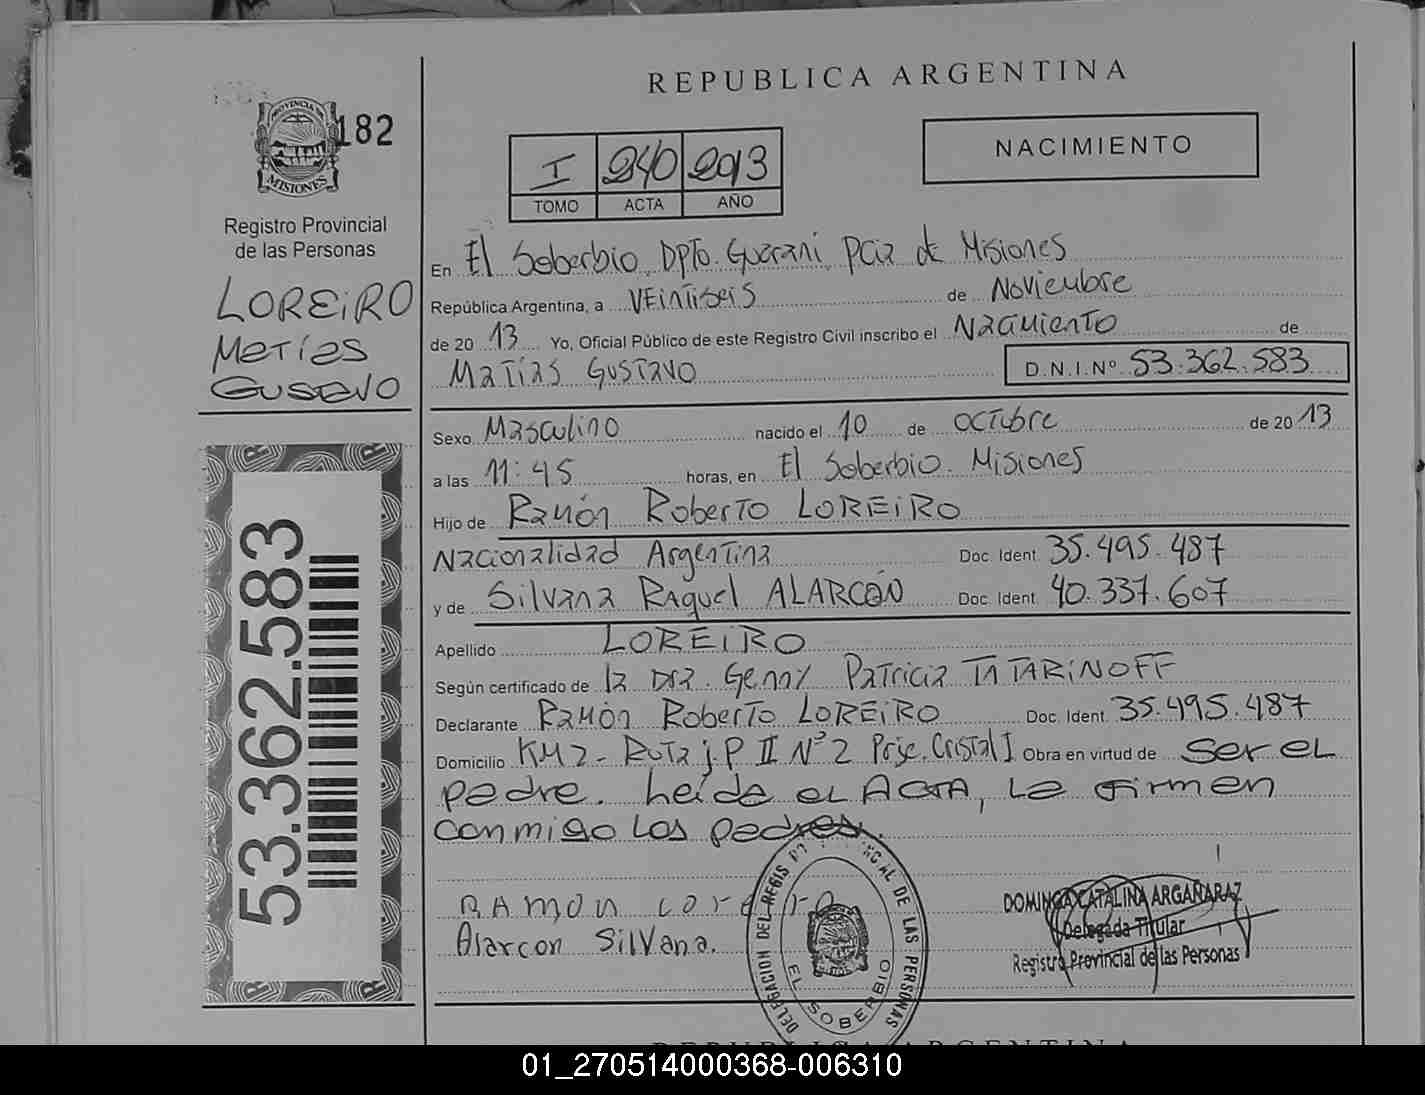 REPUBLICA ARGENTINA
PROVINCIA DE
MISIONES
182
Registro Provincial
de las Personas
LOREIRO
Metías
Gustavo
53.362.583
I 240 2013
TOMO ACTA AÑO
NACIMIENTO
En El Soberbio, Dpto. Guarani, Pcia de Misiones
República Argentina, a Veintiseis de Noviembre
de 20 13 Yo, Oficial Público de este Registro Civil inscribo el Nacimiento de
Matías Gustavo D.N.I.Nº 53.362.583
Sexo Masculino nacido el 10 de octubre de 20 13
a las 11:45 horas, en El Soberbio. Misiones
Hijo de Ramón Roberto LOREIRO
Nacionalidad Argentina Doc. Ident. 35.495.487
y de Silvana Raquel ALARCÓN Doc. Ident. 40.337.607
Apellido LOREIRO
Según certificado de la Dra. Genny Patricia TATARINOFF
Declarante Ramón Roberto LOREIRO Doc. Ident. 35.495.487
Domicilio KM 2 - Ruta J.P II Nº 2 Cristal I Obra en virtud de Ser el
padre. Leida el Acta, la firman
conmigo los padres.
RAMON LOREIRO
Alarcon Silvana.
DELEGACION DEL REGISTRO PROVINCIAL DE LAS PERSONAS
EL SOBERBIO
DOMINGA CATALINA ARGAÑARAZ
Delegada Titular
Registro Provincial de las Personas
REPUBLICA ARGENTINA
01_270514000368-006310